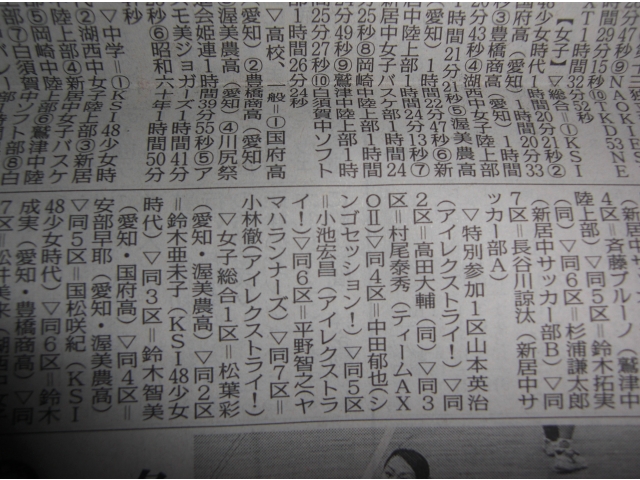 【女子】▽総合＝①KSI
48少女時代1時間20分21秒②
国府高(愛知)1時間20分33
秒③豊橋商高(愛知)1時間
20分43秒④湖西中女子陸上部
1時間21分21秒⑤渥美農高
(愛知)1時間22分47秒⑥新
居中陸上部1時間24分13秒⑦
新居中女子バスケ部1時間24
分49秒⑧岡崎中陸上部1時
⑨鷲津中陸上部1時
間25分27秒⑩白須賀中ソフト
部1時間26分24秒
▽高校、一般＝①国府高
(愛知)②豊橋商高(愛知)
渥美農高(愛知)④川尻祭
会姫連1時間39分55秒⑤ア
モ美ジョガーズ1時間41分
秒⑥昭和六十年1時間50分
▽中学＝①KSI48少女時
②湖西中女子陸上部③新居
陸上部④新居中女子バスケ
⑤岡崎中陸上部⑥鷲津中陸
部⑦白須賀中ソフト部⑧白
4区＝斉藤ブルーノ(鷲津中
陸上部)▽同5区＝鈴木拓実
(同)▽同6区＝杉浦謙太郎
(新居中サッカー部B)▽同
7区＝長谷川諒汰(新居中サ
ッカー部A)
▽特別参加1区山本英治
(アイレクストライ!)▽同
2区＝高田大輔(同)▽同3
区＝村尾泰秀(ティームAX
OⅡ)▽同4区＝中田郁也(シ
ンゴセッション!)▽同5区
＝小池宏昌(アイレクストラ
イ!)▽同6区＝平野智之(ヤ
マハランナーズ)▽同7区＝
小林徹(アイレクストライ!)
▽女子総合1区＝松葉彩
(愛知・渥美農高)▽同2区
＝鈴木亜未子(KSI48少女
時代)▽同3区＝鈴木智美
(愛知・国府高)▽同4区＝
安部早耶(愛知・渥美農高)
▽同5区＝国松咲紀(KSI
48少女時代)▽同6区＝鈴木
成実(愛知・豊橋商高)▽同
7区＝松井美来(湖西中女子